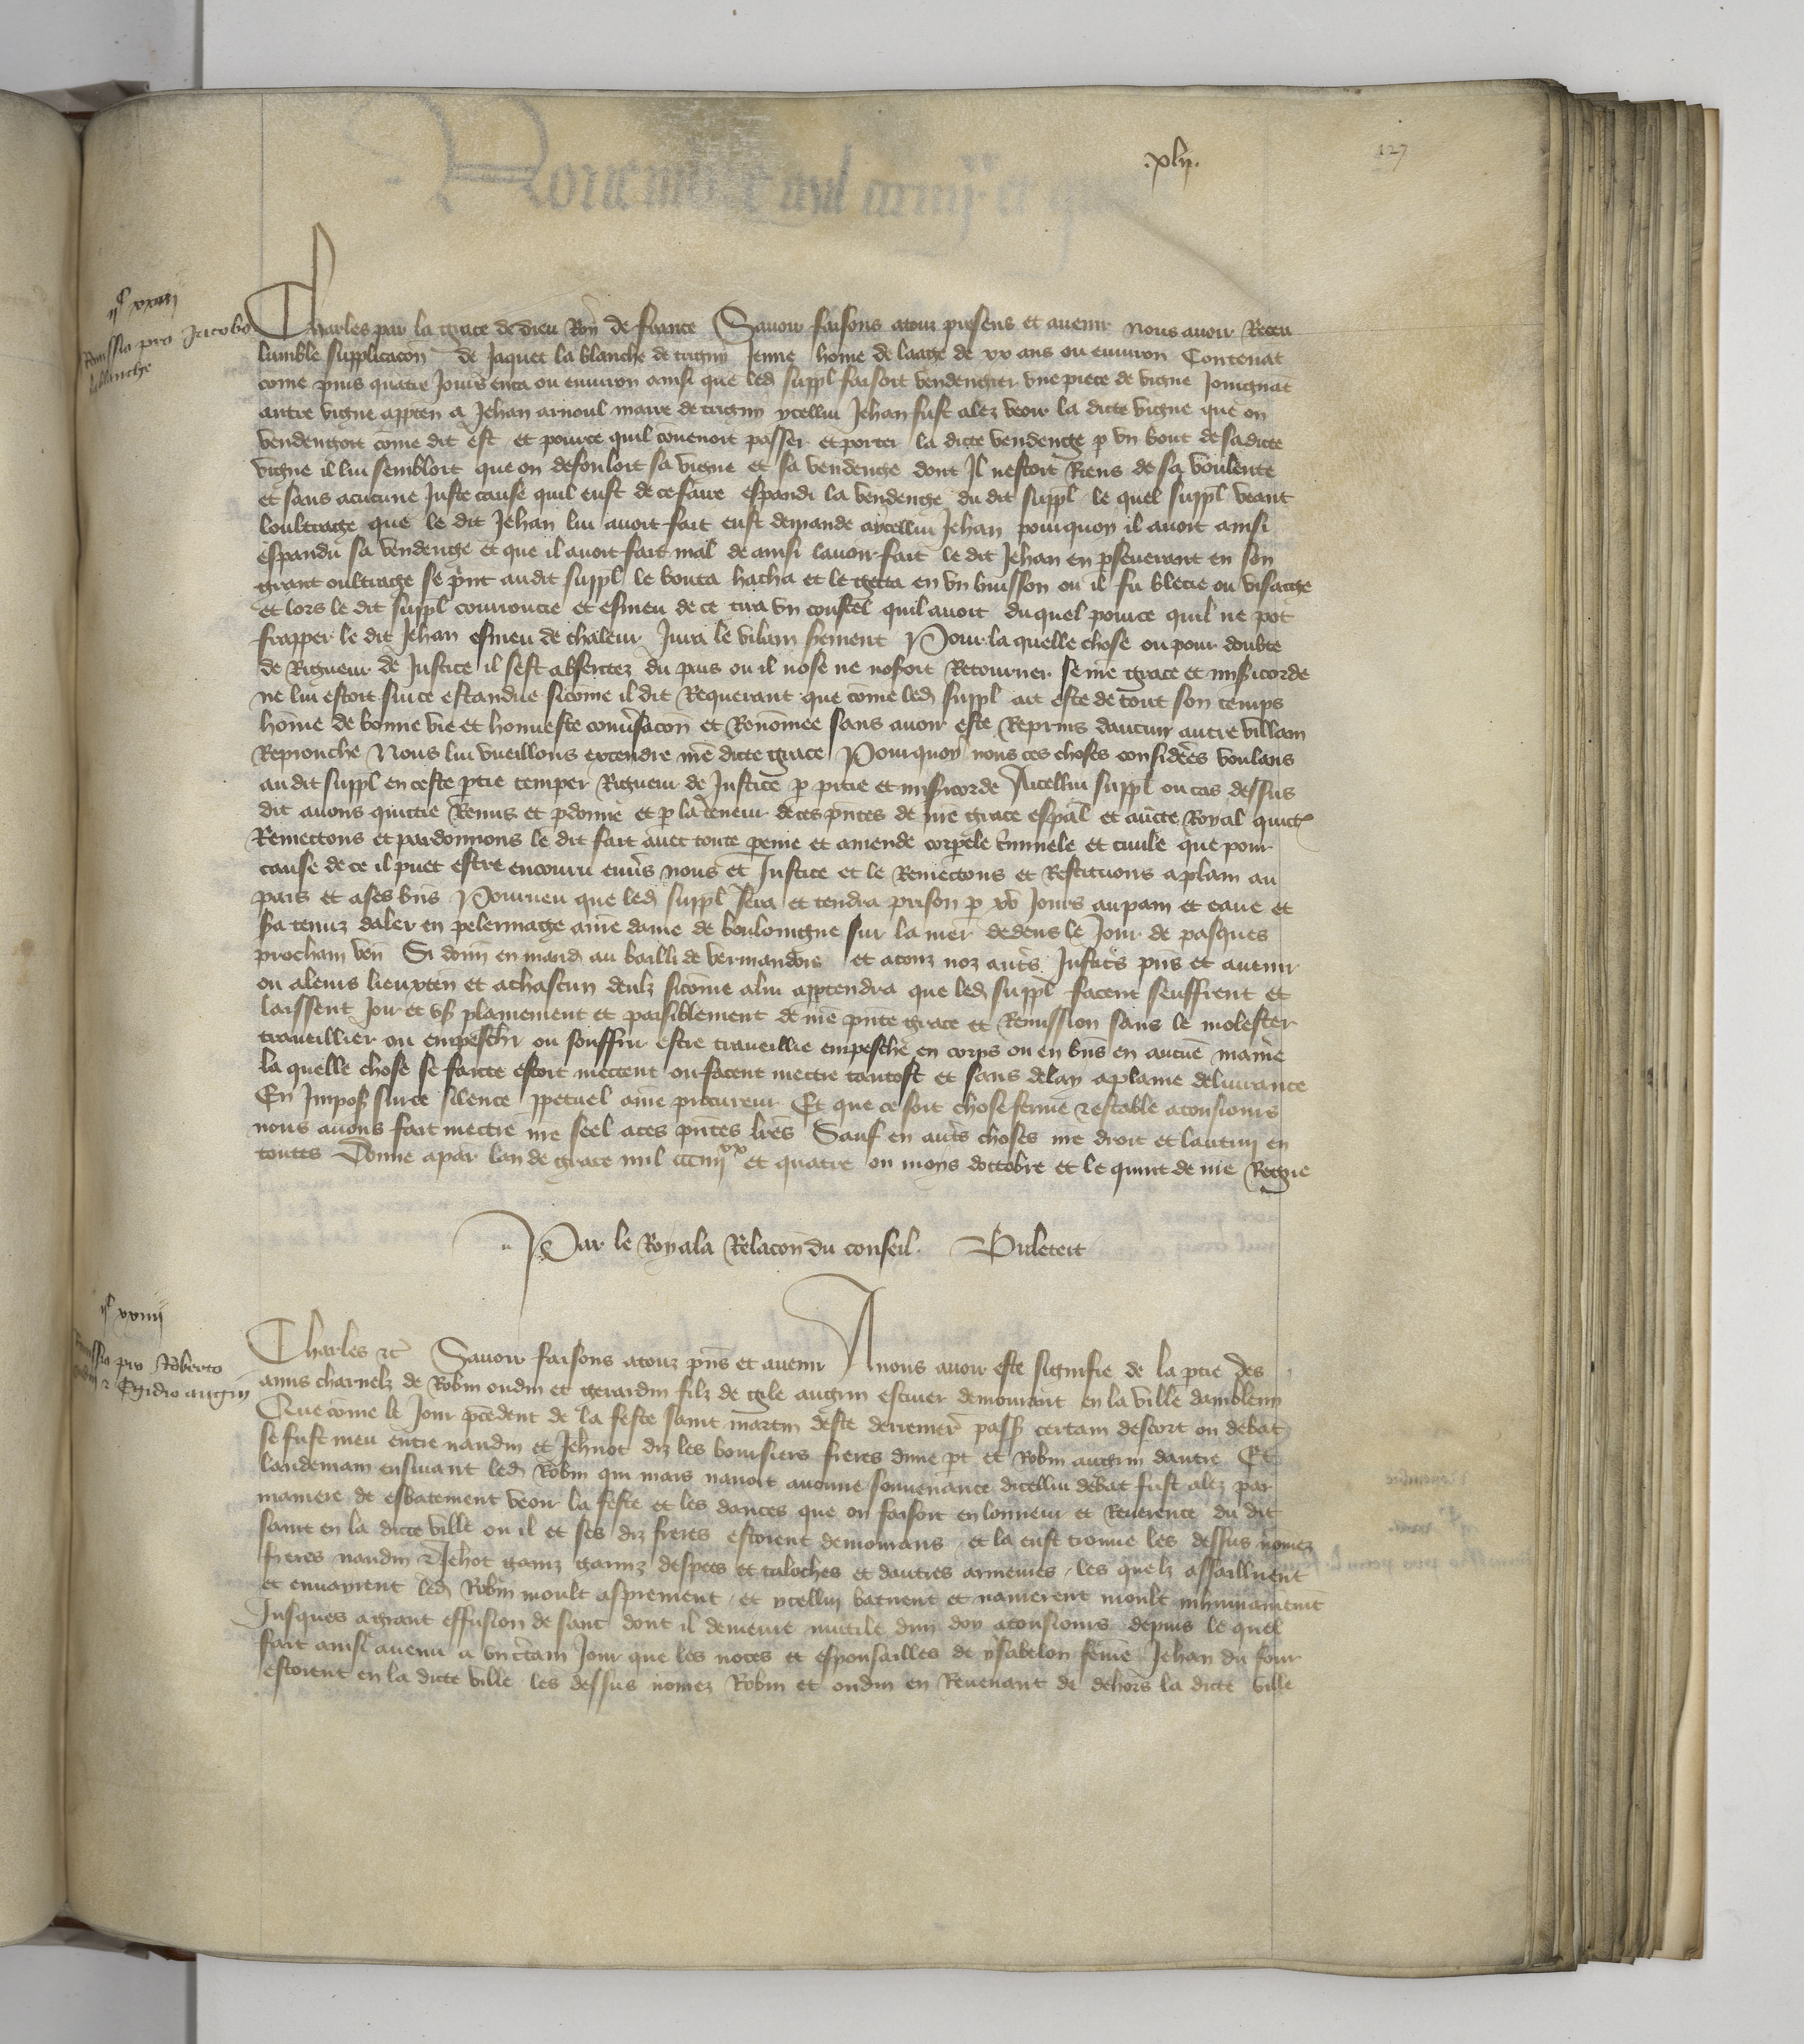 .xlij.
127
ijc xxiij
Remissio pro Jacobo
la blanche
Charles par la grace de dieu Roy de france Savoir faisons a touz presens et avenir nous avoir Receu
lumble supplicacon de Jaquet la blanche de trigny Jenne home de laage de xx ans ou environ Contenāt
come puis quatre Jours enca ou environ ainsi que led suppl faisoit vendengier une piece de vigne Joingnāt
autre vigne apptenᵗ a Jehan arnoul maire de trigny ycellui Jehan fust alez veoir la dicte vigne que on
vendengoit come dit est et pource quil covenoit passer et porter la dicte vendenge p un bout de sa dicte
vigne il lui sembloit que on defouloit sa vigne et sa vendenge dont Il nestoit Riens de sa voulente
et sans aucune Juste cause quil eust de ce faire espandi la vendenge du dit suppl le quel suppl veant
loultrage que le dit Jehan lui avoit fait eust demande aycellui Jehan pourquoy il avoit ainsi
espandu sa vendenge et que il avoit fait mal de ainsi lavoir fait le dit Jehan en pseverant en son
grant oultrage se print au dit suppl le bouta hacha et le getta en un buisson ou il fu blecie ou visaige
et lors le dit suppl courroucie et esmeu de ce tira un coustel quil avoit duquel pource quil ne pot
frapper le dit Jehan esmeu de chaleur Jura le vilain serement Pour la quelle chose ou pour doubte
de Rigueur de Justice il sest absentez du pais ou il nose ne nosoit Retourner se nre grace et misicorde
ne lui estoit sur ce estandue sicome il dit Requerant que come led suppl ait este de tout son temps
home de bonne vie et honneste conversacon et Renomee sans avoir este Reprins daucun autre villain
Reprouche Nous lui vueillons extendre nre dicte grace Pourquoy nous ces choses considerees voulans
au dit suppl en ceste ptie temper Rigueur de Justice p pitie et misicorde Aicellui suppl ou cas dessus
dit avons quictie Remis et pdonne et p la teneur de ces pntes de nre grace espal et aucte Royal quict
Remectons et pardonnons le dit fait avec toute peine et amende corpele criminele et civile que pour
cause de ce il puet estre encouru envs nous et Justice et le Remectons et Restituons a plain au
pais et a ses bns Pourveu que led suppl sera et tendra prison p xv Jours au pain et eaue et
sa tenuz daler en pelerinage a nre dame de bouloingne sur la mer dedens le Jour de pasques
prochain ven Si donn en mand au bailli de vermandois et a touz noz autrs Justicrs pns et avenir
ou a leurs lieuxten et a chascun deulz sicome a lui apptendra que led suppl facent seuffrent et
laissent Joir et us plainement et paisiblement de nre pnte grace et Remission sans le molester
traveillier ou empeschr ou souffrir estre traveillie empesche en corps ou en bns en aucue maniere
la quelle chose se faicte estoit mectent ou facent mectre tantost et sans delay a plaine delivrance
En Impos sur ce silence ppetuel a nre procureur Et que ce soit chose ferme & estable a tousiours
nous avons fait mectre nre seel a ces pntes lres Sauf en autrs choses nre droit et lautruy en
toutes Donne a par lan de grace mil ccciiijxx et quatre ou moys doctobre et le quint de nre Regne
Par le Roy a la Relacon du conseil.
ijc xxiiij
Remissio pro Roberto
oudin & Egidio augrin
Charles &c Savoir faisons a touz pns et avenir A nous avoir este signifie de la ptie des
amis charnelz de Robin oudin et gerardin filz de gile augrin escuier demourant en la ville damblemy
Que come le Jour pcedent de la feste saint martin deste derrenier pass certain descort ou debat
se fust meu entre naudin et Jehnot diz les boursiers freres dune pt et Robin augrin dautre Et
landemain ensuiant led Robin qui mais navoit aucune souvenance dicellui debat fust alez par
maniere de esbatement veoir la feste et les dances que on faisoit en lonneur et Reverence du dit
saint en la dicte ville ou il et ses diz freres estoient demourans / et la eust trouve les dessus nomez
freres naudin & Jehnot garniz despees et taloches et dautres armeures / les quelz assaillirent
et envayrent led Robin moult asprement / et ycellui batirent et navrerent moult inhumainemt
Jusques a grant effusion de sanc dont il demeure mutile dun doy a tousiours depuis le quel
fait ainsi avenu a un ctain Jour que les noces et espousailles de ysabelon feme Jehan du four
estoient en la dicte ville les dessus nomez Robin et oudin en Revenant de dehors la dicte ville